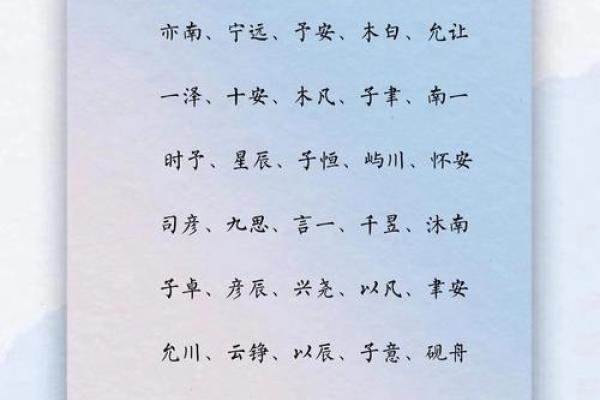 亦南、宁远、予安、木白、允让
一泽、十安、木凡、子聿、南一
时予、星辰、子恒、屿川、怀安
司彦、九思、言一、千昱、沐南
子卓、彦辰、兴尧、以凡、聿安
允川、云铮、以辰、子意、砚舟